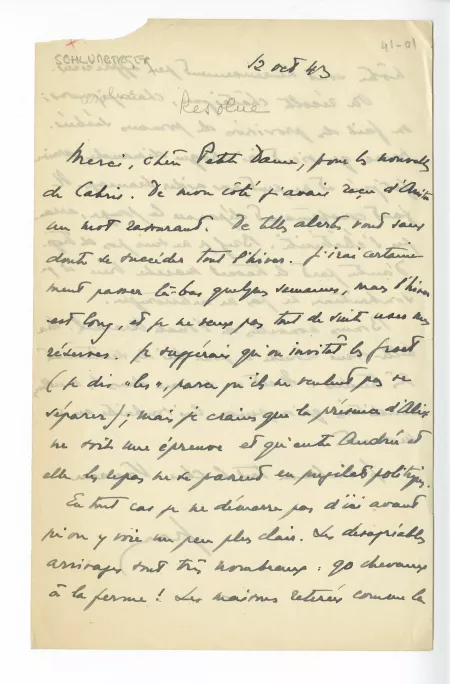 SCHLUMBERGER
41-01
12 oct 43
Resolue
Merci, chère Petite Dame, pour les nouvelles
de Cabris. De mon côté j'avais reçu d'
un mot rassurant. De telles alertes vont sans
doute se succéder tout l'hiver. J'irai certaine-
ment passer là-bas quelques semaines, mais l'hiver
est long, et je ne veux pas tout de suite user mes
réserves. Je suggérais qu'on invitât les
(je dis "les", parce qu'ils ne veulent pas se
séparer); mais je crains que la présence d'Alix
ne soit une épreuve et qu'entre Andrée et
elle les repas ne se passent en pugilats politiques.
En tout cas je ne démarre pas d'ici avant
qu'on y voie un peu plus clair. Les désagréables
arrivages sont très nombreux : 90 chevaux
à la ferme ! Les maisons retirées comme la